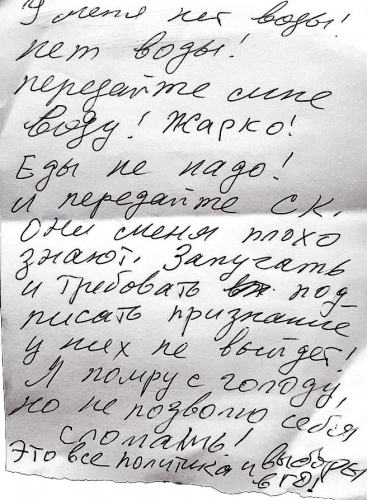 У меня нет воды!
нет воды!
передайте мне
воду! Жарко!
Еды не надо!
и передайте СК.
Они меня плохо
знают. Запугать
и требовать под-
писать признание
у них не выйдет!
Я помру с голоду,
но не позволю себя
сломать!
Это все политика и выборы
в ГО!